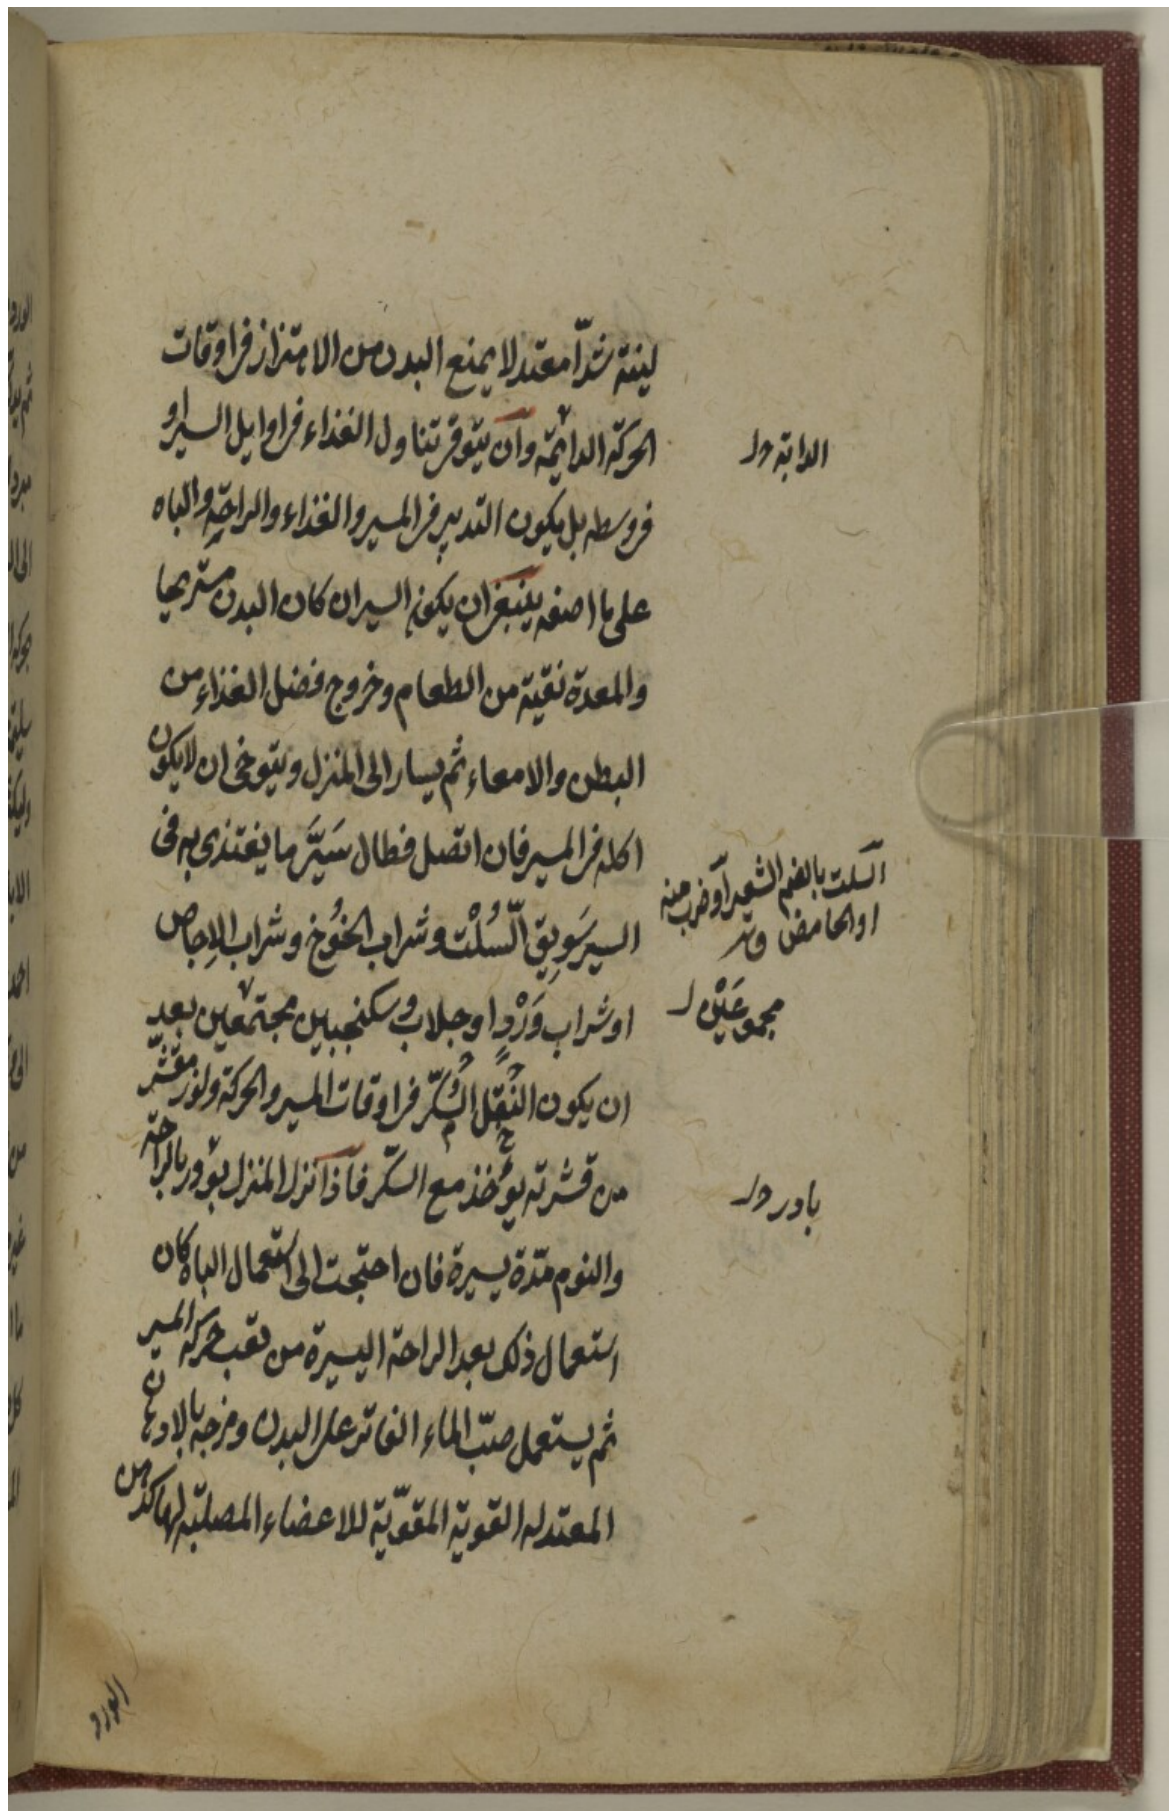 لينة شدّا معتدلا يمنع البدن من الاهتزاز في اوقات
الحركة الدائمة وان يتوقى تناول الغذاء في اوايل السير او
الدابة ول
في وسطه بل يكون التدبير في المسير والغذاء والراحة والباه
على ما اصفه ينبغي ان يكون السير ان كان البدن مستريحا
والمعدة نقية من الطعام وخروج فضل الغذاء من
البطن والامعاء ثم يسار الى المنزل ويتوخى ان لا يكون
اكله في المسير فان اتصل فطال سَيَّرَ ما يغتذى به فى
السلت بالضم الشعير او ضرب منه
او الحامض
السير سَوِيق السُّلْت وشراب الخُوخ وشراب الاِجاص
او شراب وَرْدٍ او جلاب وسكنجبين مجتمعين بعد
مجموعَيْن ل
ان يكون النُقل السُكّر في اوقات المسير والحركة ولوز مقشّر
من قشرته يؤخذ مع السكّر فاذا نزل المنزل بؤور بالراحة
بادر ول
والنوم مدّة يسيرة فان احتجت الى استعمال الباه كان
استعمال ذلك بعد الراحة اليسيرة من تعب حركة المسير
ثم يستعمل صبّ الماء الفاتر على البدن ومزجه بالادهان
المعتدله القوية المقوّية للاعضاء المصلّبة لها كدهن
الورد